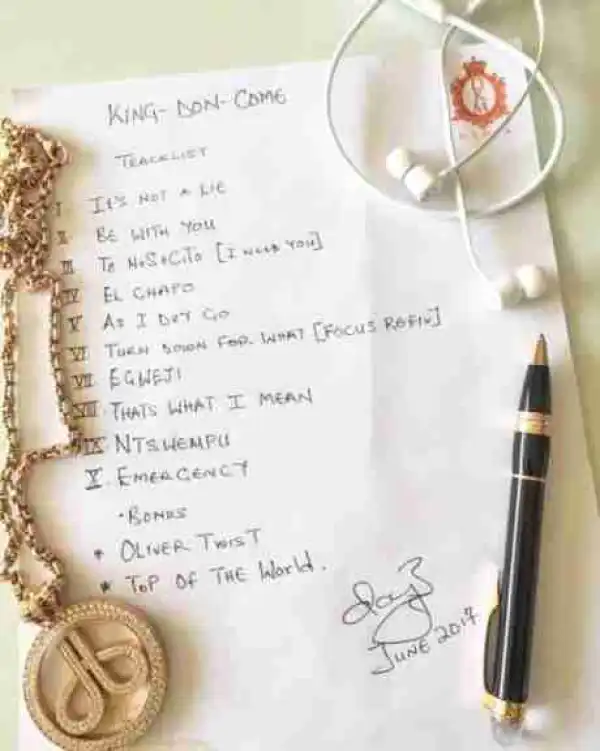 KING-DON-COME
TRACKLIST
I IT'S NOT A LIE
II BE WITH YOU
III TO NoSoCiTo [I NEED YOU]
IV EL CHAPO
V AS I DEY GO
VI TURN DOWN FOR WHAT [FOCUS REFIX]
VII EGWEJI
VIII THATS WHAT I MEAN
IX NTSWEMPU
X. EMERGENCY
• BONUS
* OLIVER TWIST
* TOP OF THE WORLD.
JUNE 2017